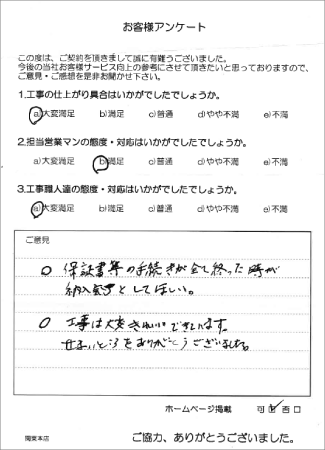 お客様アンケート
この度は、ご契約を頂きまして誠に有難うございました。
今後の当社お客様サービス向上の参考にさせて頂きたいと思っておりますので、
ご意見・ご感想を是非お聞かせ下さい。
1.工事の仕上がり具合はいかがでしたでしょうか。
a)大変満足 b)満足 c)普通 d)やや不満 e)不満
2.担当営業マンの態度・対応はいかがでしたでしょうか。
a)大変満足 b)満足 c)普通 d)やや不満 e)不満
3.工事職人達の態度・対応はいかがでしたでしょうか。
a)大変満足 b)満足 c)普通 d)やや不満 e)不満
ご意見
○ 保証書等の手続きが全て終った時が
納入完了としてほしい。
○ 工事は大変きれいにできています。
せまいところをありがとうございました。
ホームページ掲載 可 否
関東本店
ご協力、ありがとうございました。